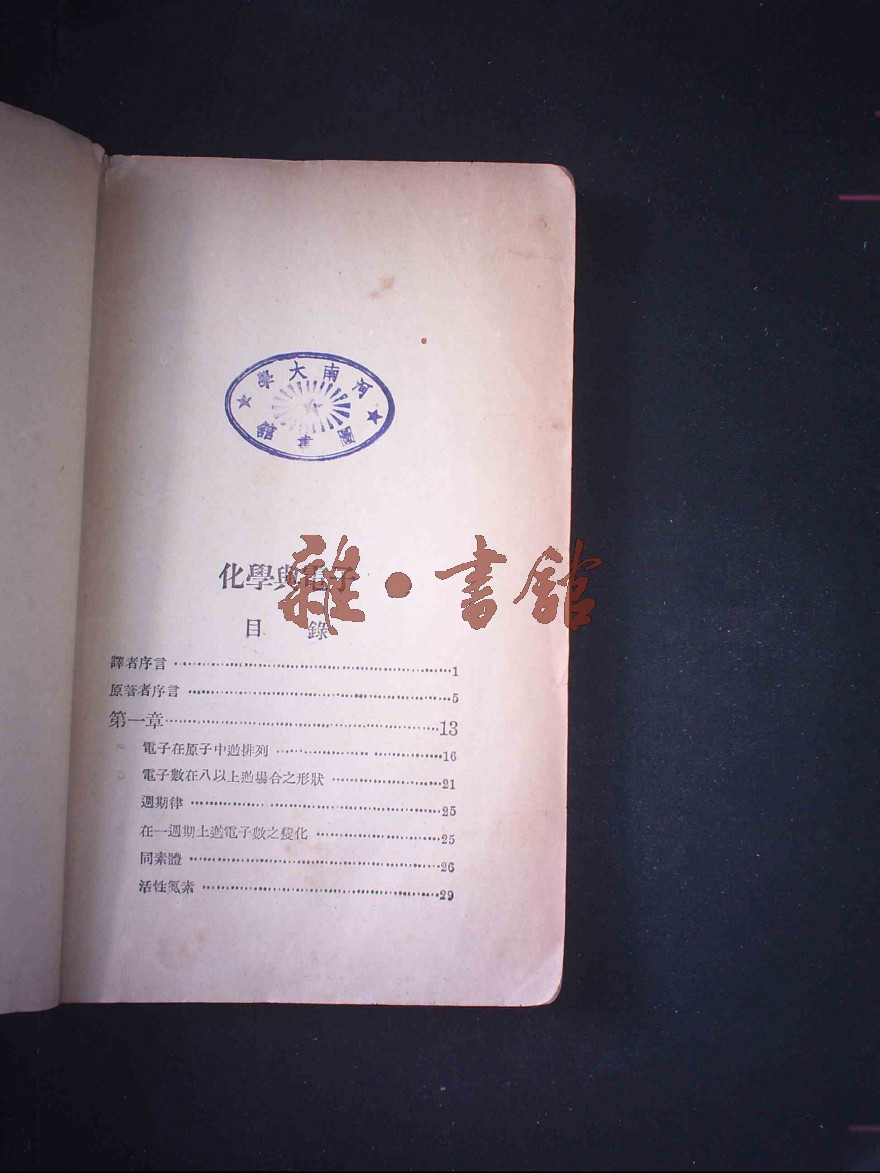 河南大學
圖書館
化學與電子
雜·書館
目錄
譯者序言 1
原著者序言 5
第一章 13
電子在原子中逌排列 16
電子數在八以上逌場合之形狀 21
週期律 25
在一週期上逌電子數之變化 25
同素體 26
活性氮素 29